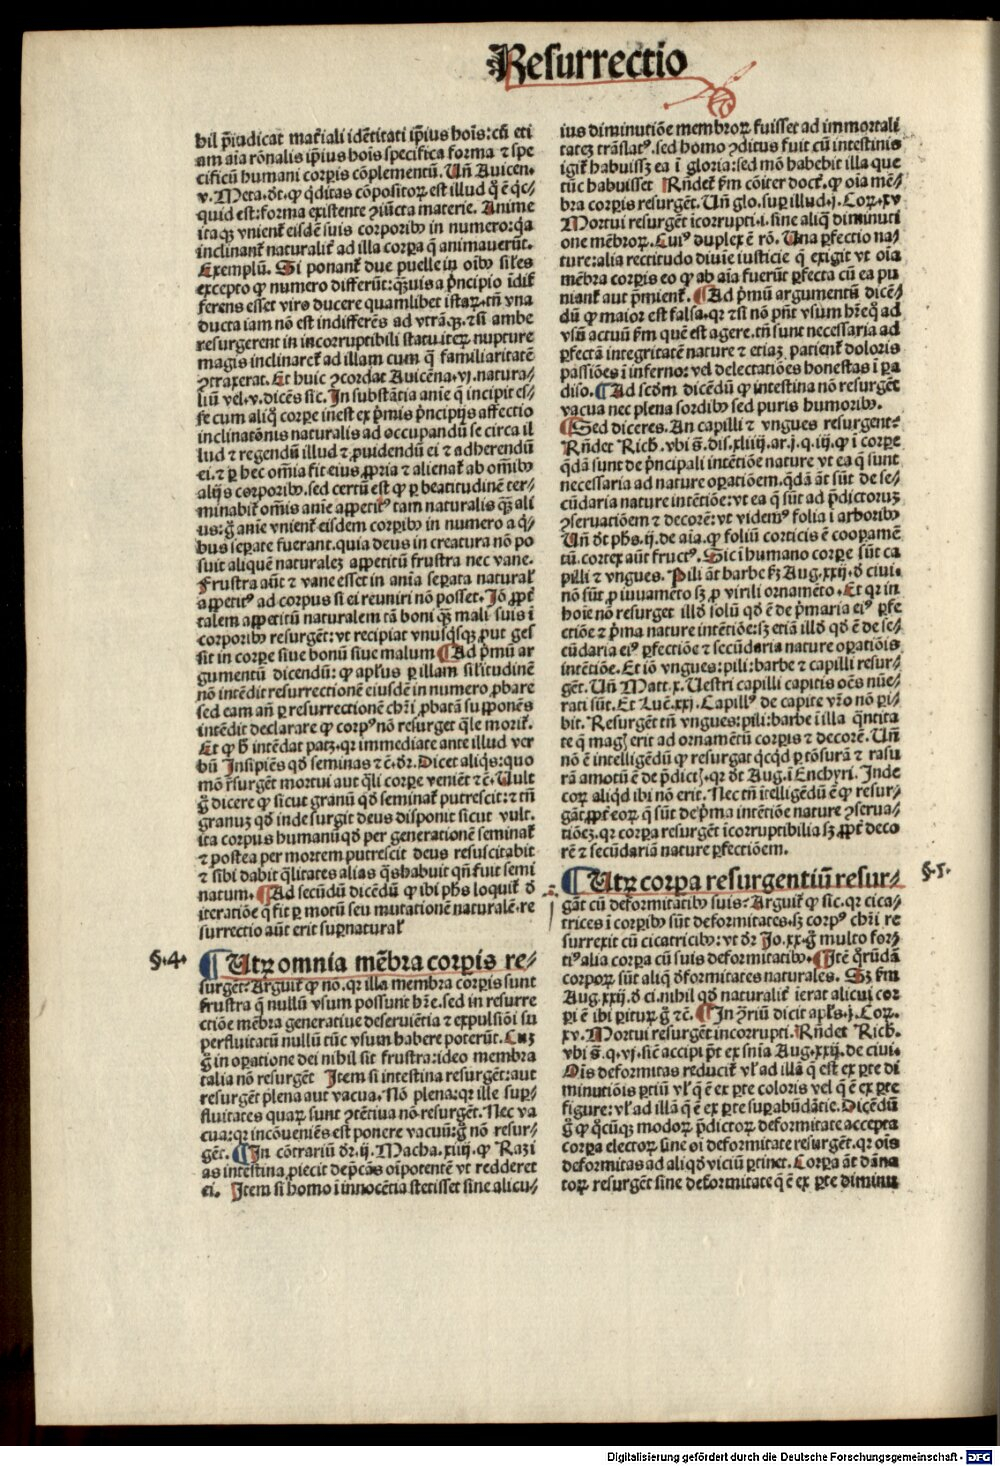 Resurrectio
hil p̄iudicat mat̄iali idētitati ip̄ius hoīs: cū eti
am aīa rōnalis ip̄ius hoīs specifica forma ⁊ spe
cificū humani corꝑis cōplementū. Un̄ Auicen.
v. Meta. dt̄. ꝙ qditas cōpositoꝝ est illud q̄ ē qc-
quid est: forma existente ꝯiūcta materie. Anime
itaqꝫ vnient̄ eisdē suis corporibꝰ in numero: qa
inclinant̄ naturalit̄ ad illa corꝑa q̄ animauerūt.
Exemplū. Si ponant̄ due puelle in oībꝰ siłes
excepto ꝙ numero differūt: qꝫuis a p̄ncipio īdif
ferens esset viro ducere quamlibet istaꝝ. tn̄ vna
ducta iam nō est indifferēs ad vtrāqꝫ. ⁊ si ambe
resurgerent in incorruptibili statu iteꝝ nupture
magis inclinaret̄ ad illam cum q̄ familiaritatē
ꝯtraxerat. Et huic ꝯcordat Auicēna. vj. natura-
liū vel. v. dicēs sic. In substātia anie q̄ incipit es-
se cum aliq̄ corꝑe inest ex p̄mis p̄ncipijs affectio
inclinatōnis naturalis ad occupandū se circa il
lud ⁊ regendū illud ⁊ ꝓuidendū ei ⁊ adherendū
ei. ⁊ ꝑ hec om̄ia fit eius ꝓpria ⁊ alienat̄ ab om̄ibꝰ
alijs corporibꝰ. sed certū est ꝙ ꝑ beatitudinē ter-
minabit̄ om̄is anie appetitꝰ tam naturalis qꝫ ali
us: g̊ anie vnient̄ eisdem corꝑibꝰ in numero a q̄-
bus seꝑate fuerant. quia deus in creatura nō po
suit aliquē naturaleꝫ appetitū frustra nec vane.
Frustra aūt ⁊ vane esset in anīa seꝑata naturał
appetitꝰ ad corpus si ei reuniri nō posset. Jō ꝓpt̄
talem appetitū naturalem tā boni qꝫ mali suis ī
corꝑoribꝰ resurgēt: vt recipiat vnusq̄sqꝫ ꝓut ges
sit in corꝑe siue bonū siue malum ¶Ad p̄mū ar
gumentū dicendū: ꝙ apłus ꝑ illam sil̄itudinē
nō intēdit resurrectionē eiusdē in numero ꝓbare
sed eam an̄ ꝑ resurrectionē chr̄i ꝓbatā supponēs
intēdit declarare ꝙ corpꝰ nō resurget q̄le morit̄.
Et ꝙ h̄ intēdat patꝫ. qr immediate ante illud ver
bū Insipiēs qd̄ seminas ⁊ ē. dr̄. Dicet aliq̄s: quo
mō r̄surgēt mortui aut q̄li corꝑe veniēt ⁊ē. Uult
g̊ dicere ꝙ sicut granū qd̄ seminat̄ putrescit: ⁊ tn̄
granuꝫ qd̄ inde surgit deus disponit sicut vult.
ita corpus humanū qd̄ per generationē seminat̄
⁊ postea per mortem putrescit deus resuscitabit
⁊ sibi dabit q̄litates alias q̄s habuit qn̄ fuit semi
natum. ¶Ad secūdū dicēdū ꝙ ibi ph̄s loquit̄ d̄
iteratiōe q̄ fit ꝑ motū seu mutationē naturalē. re
surrectio aūt erit suꝑnaturał
§.4.
¶ Utꝝ omnia mēbra corꝑis re-
surgēt? Arguit̄ ꝙ nō. qr illa membra corꝑis sunt
frustra q̄ nullū vsum possunt hr̄e. sed in resurre
ctiōe mēbra generatiue deseruiētia ⁊ expulsiōi su
perfluitatū nullū tūc vsum habere poterūt. Cuꝫ
g̊ in oꝑatione dei nihil sit frustra: ideo membra
talia nō resurgēt Item si intestina resurgēt: aut
resurgēt plena aut vacua. Nō plena: qr ille suꝑ-
fluitates quaꝝ sunt ꝯtētiua nō resurgēt. Nec va
cua: qr incōueniēs est ponere vacuū: g̊ nō resur-
gēt. ¶In cōtrariū dr̄. ij. Macha. xiiij. ꝙ Razi
as intestina ꝓiecit dep̄cās oīpotentē vt redderet
ei. Item si homo ī innocētia stetisset sine alicu-
ius diminutiōe membroꝝ fuisset ad immortali
tateꝫ trāslatꝰ. sed homo ꝯditus fuit cū intestinis
igit̄ habuissꝫ ea ī gloria: sed mō habebit illa que
tūc habuisset Rn̄det̄ ẜm cōiter doct̄. ꝙ oīa mē-
bra corꝑis resurgēt. Un̄ glo. suꝑ illud. j. Coꝝ. xv
Mortui resurgēt īcorrupti. i. sine aliq̄ diminuti
one mēbroꝝ. Cuiꝰ duplex ē rō. Una ꝑfectio na-
ture: alia rectitudo diuīe iusticie q̄ exigit vt oīa
mēbra corꝑis eo ꝙ ab aīa fuerūt ꝑfecta cū ea pu
niant̄ aut p̄mient̄. ¶Ad p̄mū argumentū dicē-
dū ꝙ maior est falsa. qr ⁊ si nō pn̄t vsum hr̄e q̄ ad
vsū actuū ẜm que est agere. tn̄ sunt necessaria ad
ꝑfectā integritatē nature ⁊ etiaꝫ patient̄ doloris
passiōes ī inferno: vel delectatiōes honestas ī ꝑa
diso. ¶Ad scd̄m dicēdū ꝙ intestina nō resurgēt
vacua nec plena sordibꝰ sed puris humoribꝰ.
¶Sed diceres. An capilli ⁊ vngues resurgent?
Rn̄det Rich. vbi s̄. dis. xliiij. ar. j. q. iij. ꝙ ī corꝑe
q̄dā sunt de p̄ncipali intētiōe nature vt ea q̄ sunt
necessaria ad nature oꝑatiōem. q̄dā āt sūt de se-
cūdaria nature intētiōe: vt ea q̄ sūt ad p̄dictoruꝫ
ꝯseruatiōem ⁊ decorē: vt videmꝰ folia ī arboribꝰ
Un̄ dt̄ ph̄s. ij. de aīa. ꝙ foliū corticis ē coopamē
tū. cortex aūt fructꝰ. Sic ī humano corꝑe sūt ca
pilli ⁊ vngues. Pili āt barbe ẜꝫ Aug. xxij. d̄ ciui.
nō sūt ꝓ iuuamēto sꝫ ꝓ virili ornamēto. Et qr in
hoīe nō resurget illd̄ solū qd̄ ē de p̄maria eiꝰ ꝑfe
ctiōe ⁊ p̄ma nature intētiōe: sꝫ etiā illd̄ qd̄ ē de se-
cūdaria eiꝰ ꝑfectiōe ⁊ secūdaria nature oꝑatiōis
intētiōe. Et iō vngues: pili: barbe ⁊ capilli resur-
gēt. Un̄ Matt. x. Uestri capilli capitis oēs nūe-
rati sūt. Et Luc̄. xxj. Capillꝰ de capite vr̄o nō ꝑi-
bit. Resurgēt tn̄ vngues: pili: barbe ī illa q̄ntita
te q̄ magꝭ erit ad ornamētū corꝑis ⁊ decorē. Un̄
nō ē intelligēdū ꝙ resurgat qcqd ꝑ tōsurā ⁊ rasu
rā amotū ē de p̄dictꝭ. qr dt̄ Aug. ī Enchyri. Inde
coꝝ aliqd ibi nō erit. Nec tn̄ ītelligēdū ē ꝙ resur-
gāt ꝓpt̄ eoꝝ q̄ sūt de p̄ma intētiōe nature ꝯserua-
tiōeꝫ. qr corꝑa resurgēt īcorruptibilia sꝫ ꝓpt̄ deco
rē ⁊ secūdariā nature ꝑfectiōem.
§.5.
¶ Utꝝ corꝑa resurgentiū resur-
gāt cū deformitatibꝰ suis? Arguit̄ ꝙ sic. qr cica-
trices ī corꝑibꝰ sūt deformitates. sꝫ corpꝰ chr̄i re
surrexit cū cicatricibꝰ: vt dr̄ Jo. xx. g̊ multo for-
tiꝰ alia corꝑa cū suis deformitatibꝰ. ¶Itē q̄rūdā
corpoꝝ sūt aliq̄ d̄formitates naturales. Sꝫ ẜm
Aug. xxij. d̄ ci. nihil qd̄ naturalit̄ ierat alicui cor
ꝑi ē ibi ꝑiturꝝ g̊ ⁊ē. ¶In ꝯr̄iū dicit apłs. j. Coꝝ.
xv. Mortui resurgēt incorrupti. Rn̄det Rich.
vbi s̄. q. vj. sic̄ accipi pt̄ ex sn̄ia Aug. xxij. de ciui.
Oīs deformitas reducit̄ vł ad illā q̄ est ex ꝑte di
minutiōis ꝑtiū vł q̄ ē ex ꝑte coloris vel q̄ ē ex ꝑte
figure: vł ad illā q̄ ē ex ꝑte suꝑabūdātie. Dicēdū
g̊ ꝙ q̄cūqꝫ modoꝝ p̄dictoꝝ deformitate accepta
corꝑa electoꝝ sine oī deformitate resurgēt. qr oīs
deformitas ad aliqd̄ viciū ꝑtinet. Corꝑa āt dāna
toꝝ resurgēt sine deformitate q̄ ē ex ꝑte diminu
Digitalisierung gefördert durch die Deutsche Forschungsgemeinschaft - DFG